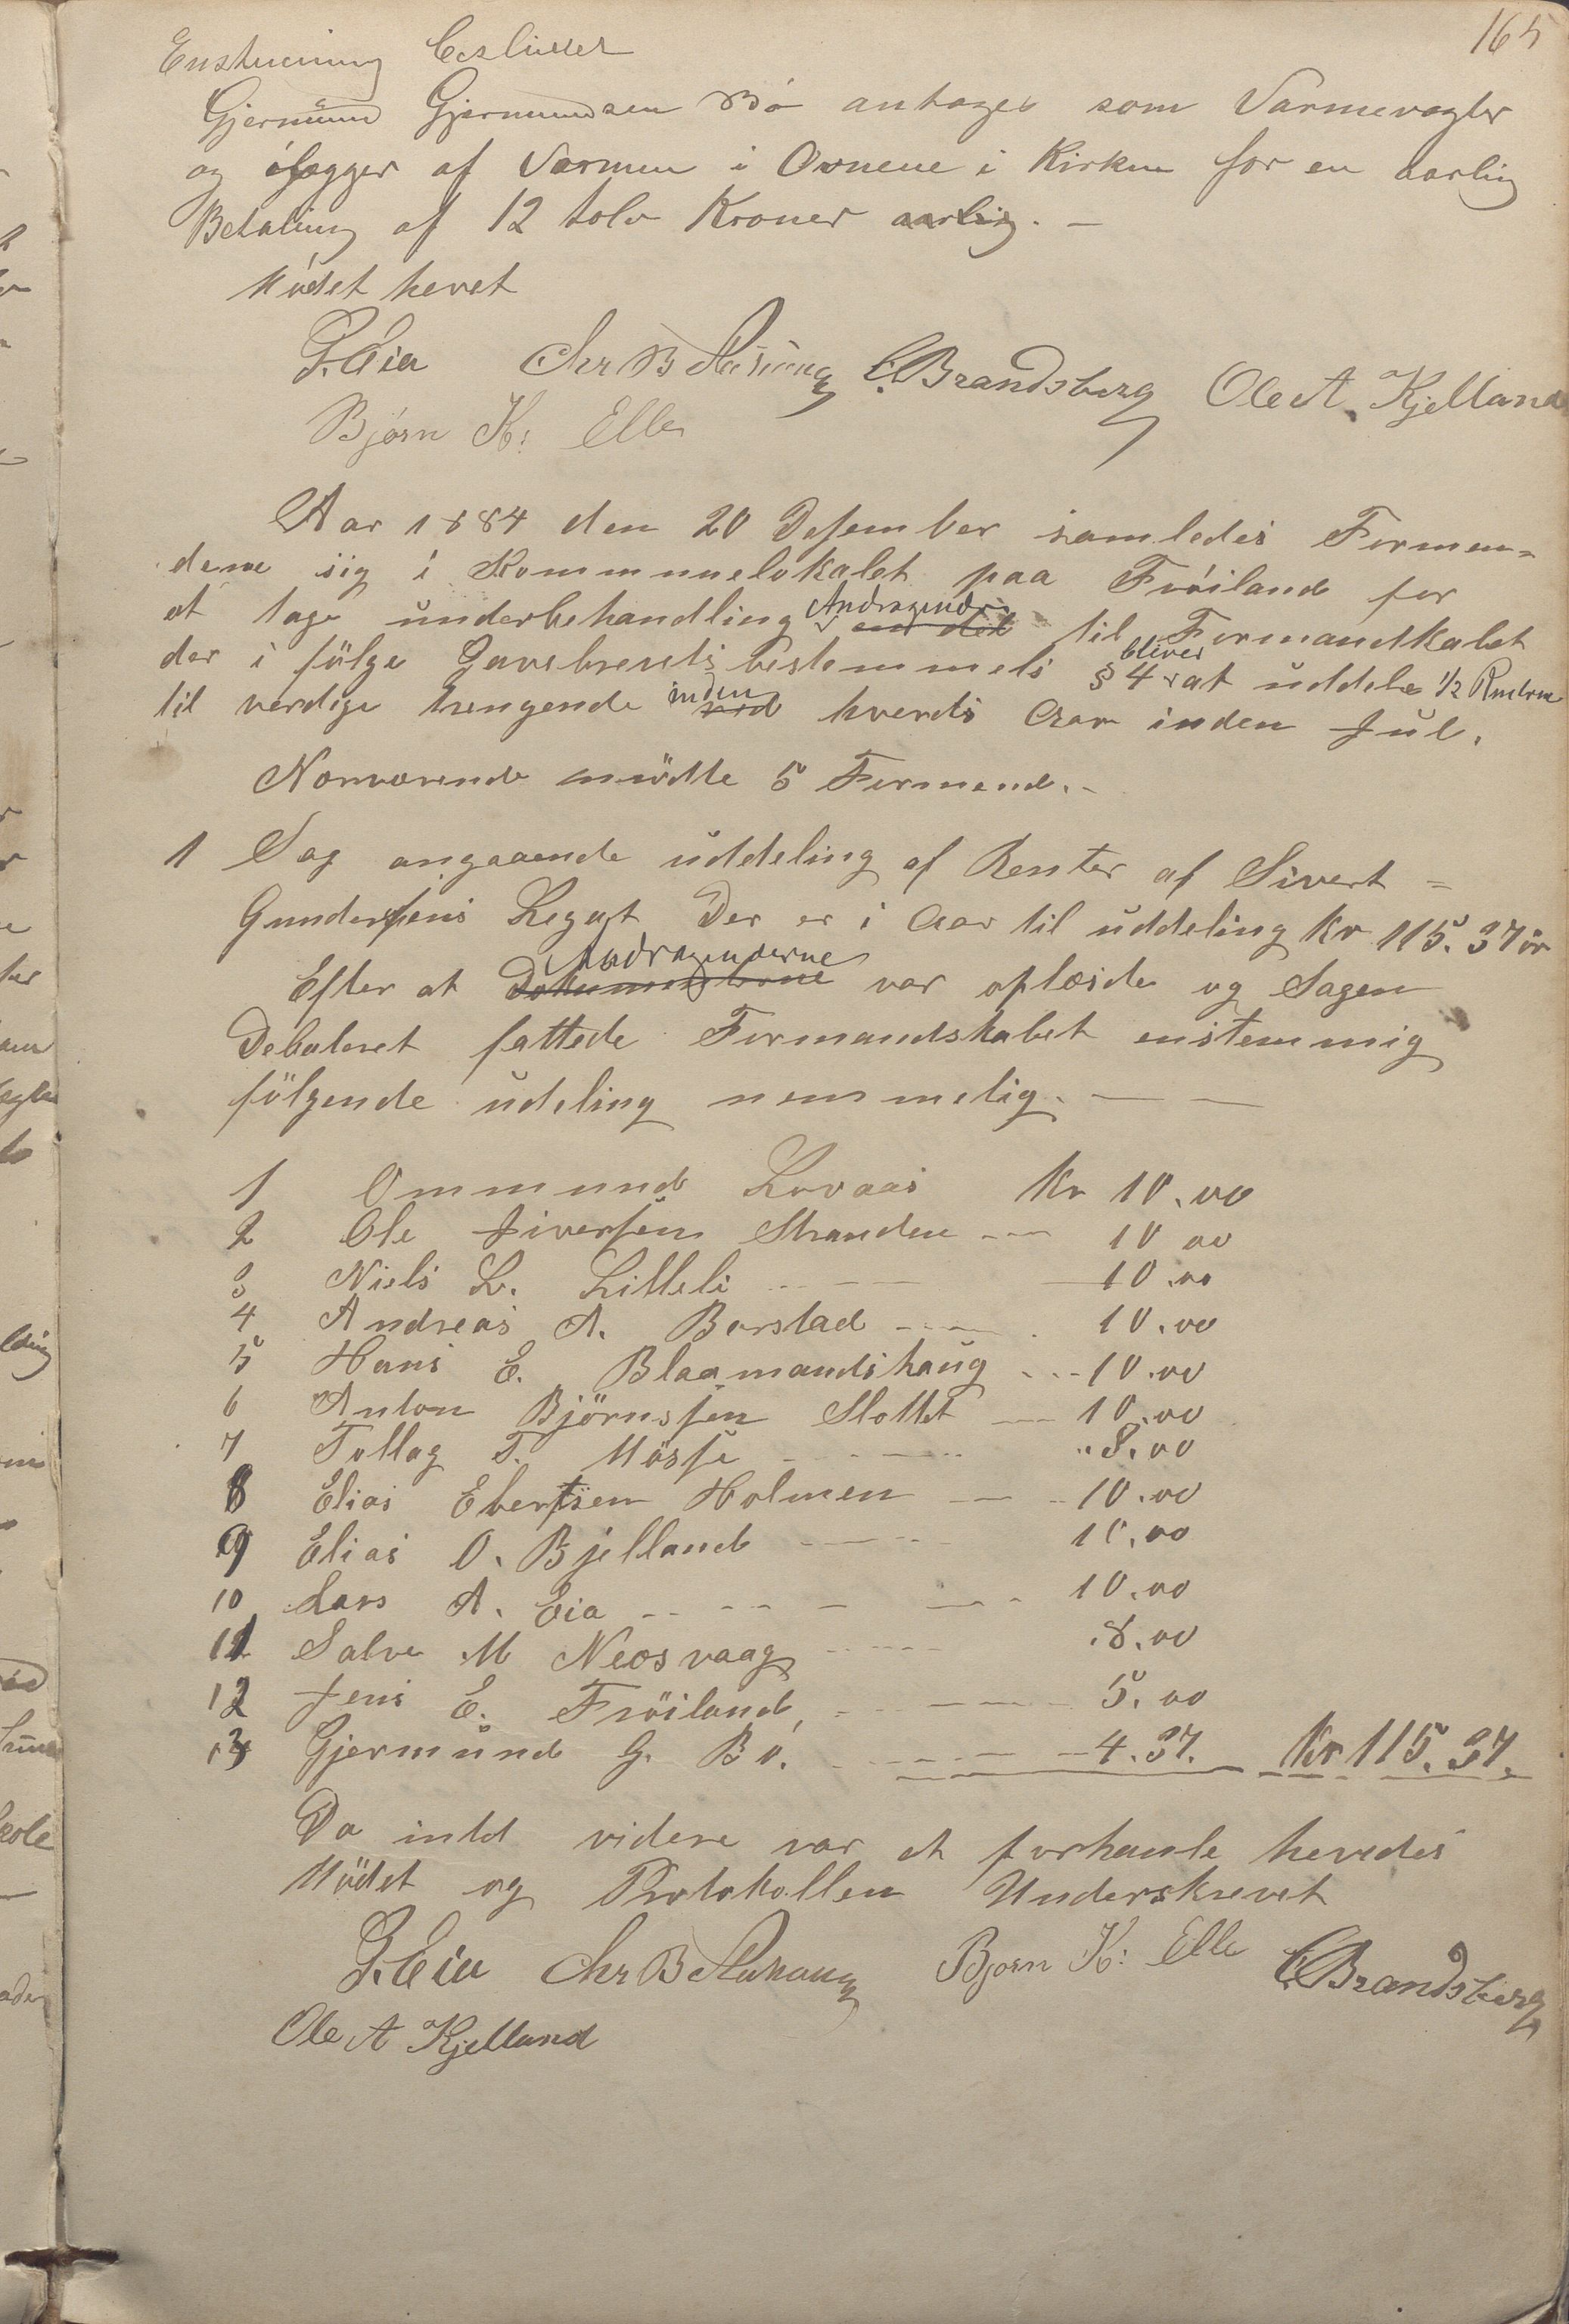 165
Enstemmig Besluttet
Gjermund Gjermundsen Bö antages som Varmevogter
og ilægger af Varmen i Ovnene i Kirken for en aarlig
Betaling af 12 tolv Kroner aarlig. —
Mödet hevet
G. Eia Chr B Aarhoug C. Brandsberg Ole A. Kjelland
Bjørn K: Elle
Aar 1884 den 20 Desember samledes Formen=
dene sig i Kommunelokalet paa Fröiland for
at tage underbehandling Andragender til Formandskabet
der i fölge Gavebrevets bestemmels § 4 bliver at uddele 1/2 Renterne
til verdige trengende inden hverts Aar inden Jul.
Nærværende mödte 5 Formend. -
1 Sag angaaende uddeling af Renter af Sivert =
Gundersens Legat Der er i Aar til uddeling Kr 115.37 ör
Efter at Andragenderne var oplæste og Sagen
Debateret fattede Formandskabet enstemmig
fölgende udeling nemmelig. — —
1 Ommund Lovaas Kr 10.00
2 Ole Iversen Stranden --- 10 00
3 Niels L. Lilleli --- 10.00
4 Andreas A. Borstad ---- 10.00
5 Hans E. Blaamandshaug --- 10.00
6 Anton Björnsen Slottet --- 10.00
7 Tollag T. Mosse ---- 8.00
8 Elias Ebertsen Holmen --- 10.00
9 Elias O. Bjelland ---- 10.00
10 Lars A. Eia ---- 10.00
11 Salve M Neosvaag ---- 8.00
12 Jens E. Fröiland, ---- 5.00
13 Gjermund G. Bö. ---- 4.37. Kr 115.37.
Da intet videre var at forhanle hevedes
Mödet og Protokollen Underskrevet
G. Eia Chr B Aarhoug Bjørn K: Elle C. Brandsberg
Ole A Kjelland